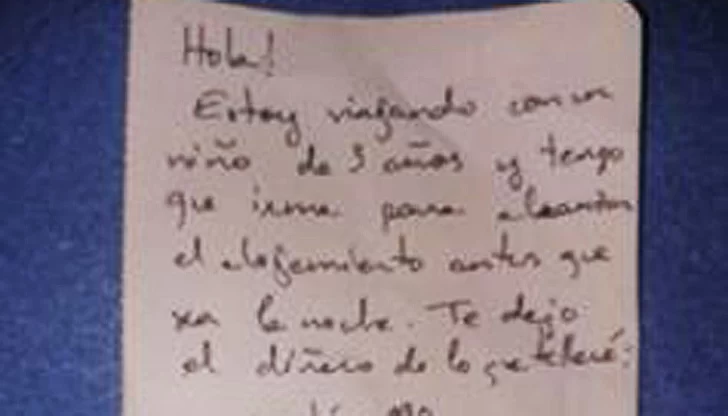 Hola!
Estoy viajando con un
niño de 3 años y tengo
que irme para alcanzar
el alojamiento antes que
sea la noche. Te dejo
el dinero de lo que